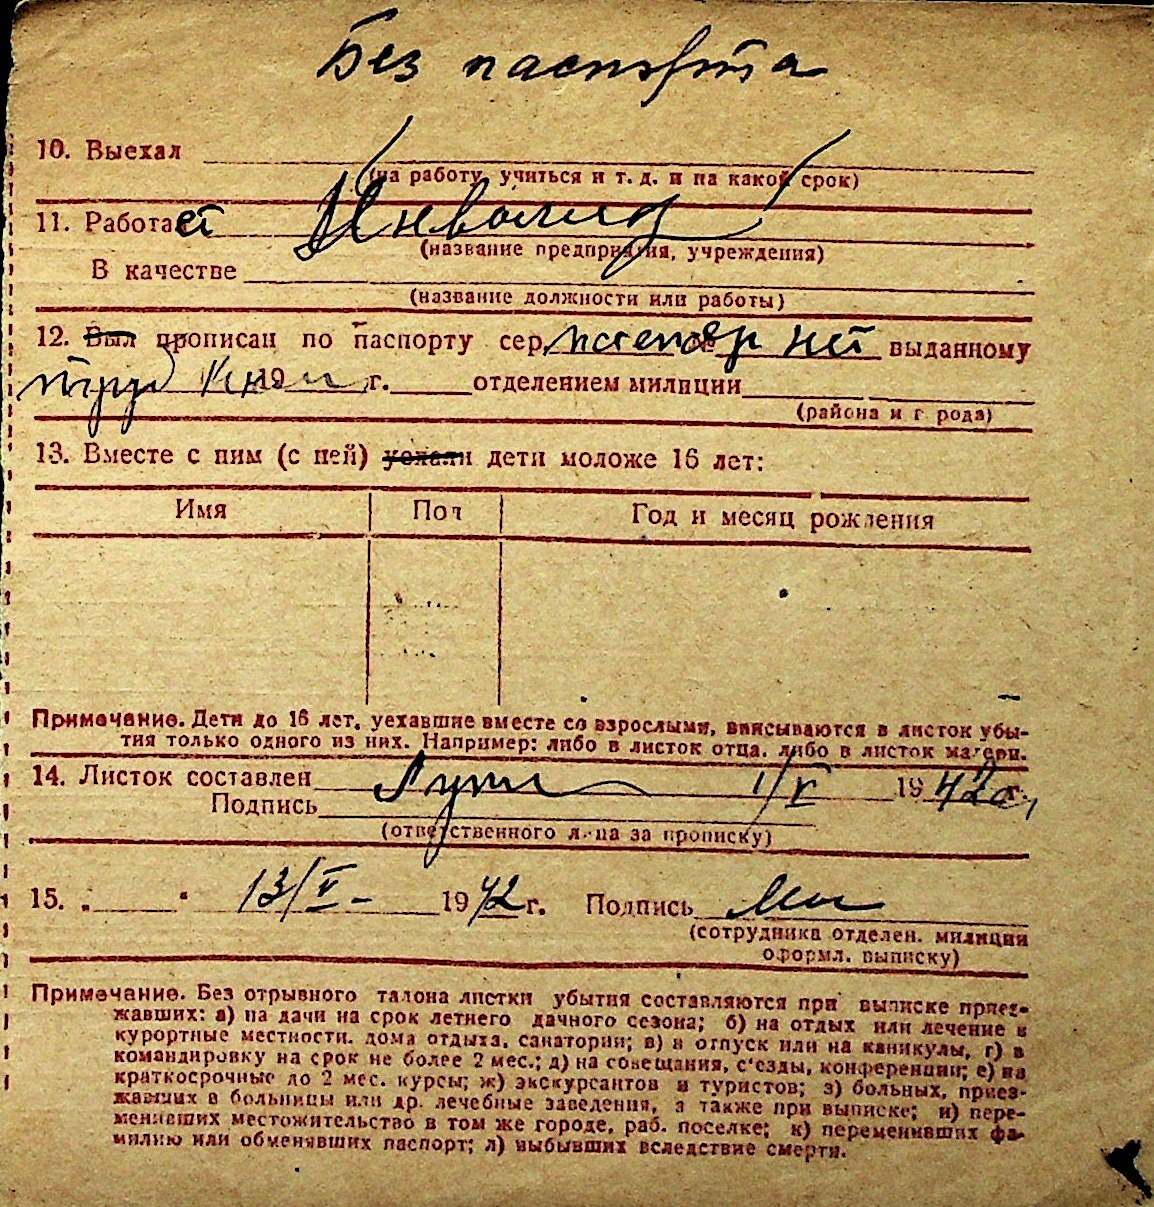 Без паспорта
10. Выехал
(на работу, учиться и т. д. и на какой срок)
11. Работает Инвалид
(название предприятия, учреждения)
В качестве
(название должности или работы)
12. Был прописан по паспорту сер. нет выданному
19 г. отделением милиции
(района и г рода)
13. Вместе с ним (с ней) уехали дети моложе 16 лет:
Имя Пол Год и месяц рождения
Примечание. Дети до 16 лет, уехавшие вместе со взрослыми, вписываются в листок убы-
тия только одного из них. Например: либо в листок отца, либо в листок матери.
14. Листок составлен 1/V 1942 г.
Подпись
(ответственного лица за прописку)
15. „ “ 13/V - 1942 г. Подпись
(сотрудника отделен. милиции
оформл. выписку)
Примечание. Без отрывного талона листки убытия составляются при выписке приез-
жавших: а) на дачи на срок летнего дачного сезона; б) на отдых или лечение в
курортные местности, дома отдыха, санатории; в) в отпуск или на каникулы, г) в
командировку на срок не более 2 мес.; д) на совещания, с'езды, конференции; е) на
краткосрочные до 2 мес. курсы; ж) экскурсантов и туристов; з) больных, приез-
жавших в больницы или др. лечебные заведения, а также при выписке; и) пере-
менивших местожительство в том же городе, раб. поселке; к) переменивших фа-
милию или обменявших паспорт; л) выбывших вследствие смерти.